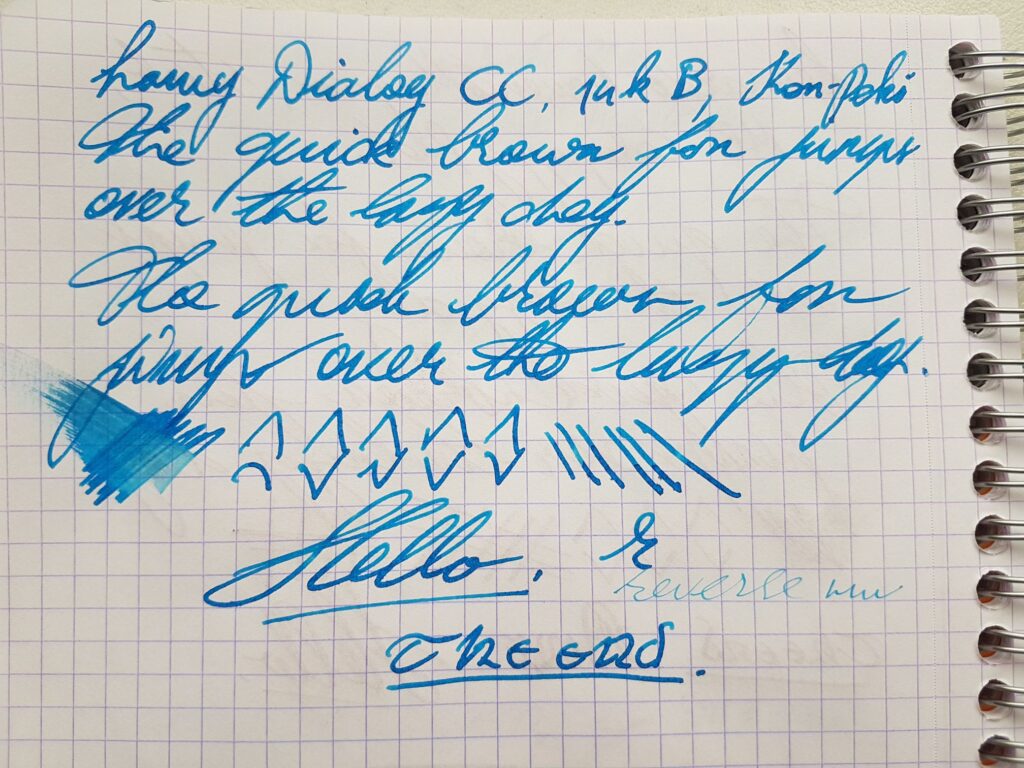 Lamy Dialog CC, 14k B, Kon-Peki
The quick brown fox jumps
over the lazy dog.
The quick brown fox
jumps over the lazy dog.
Hello.
reverse
THE END.